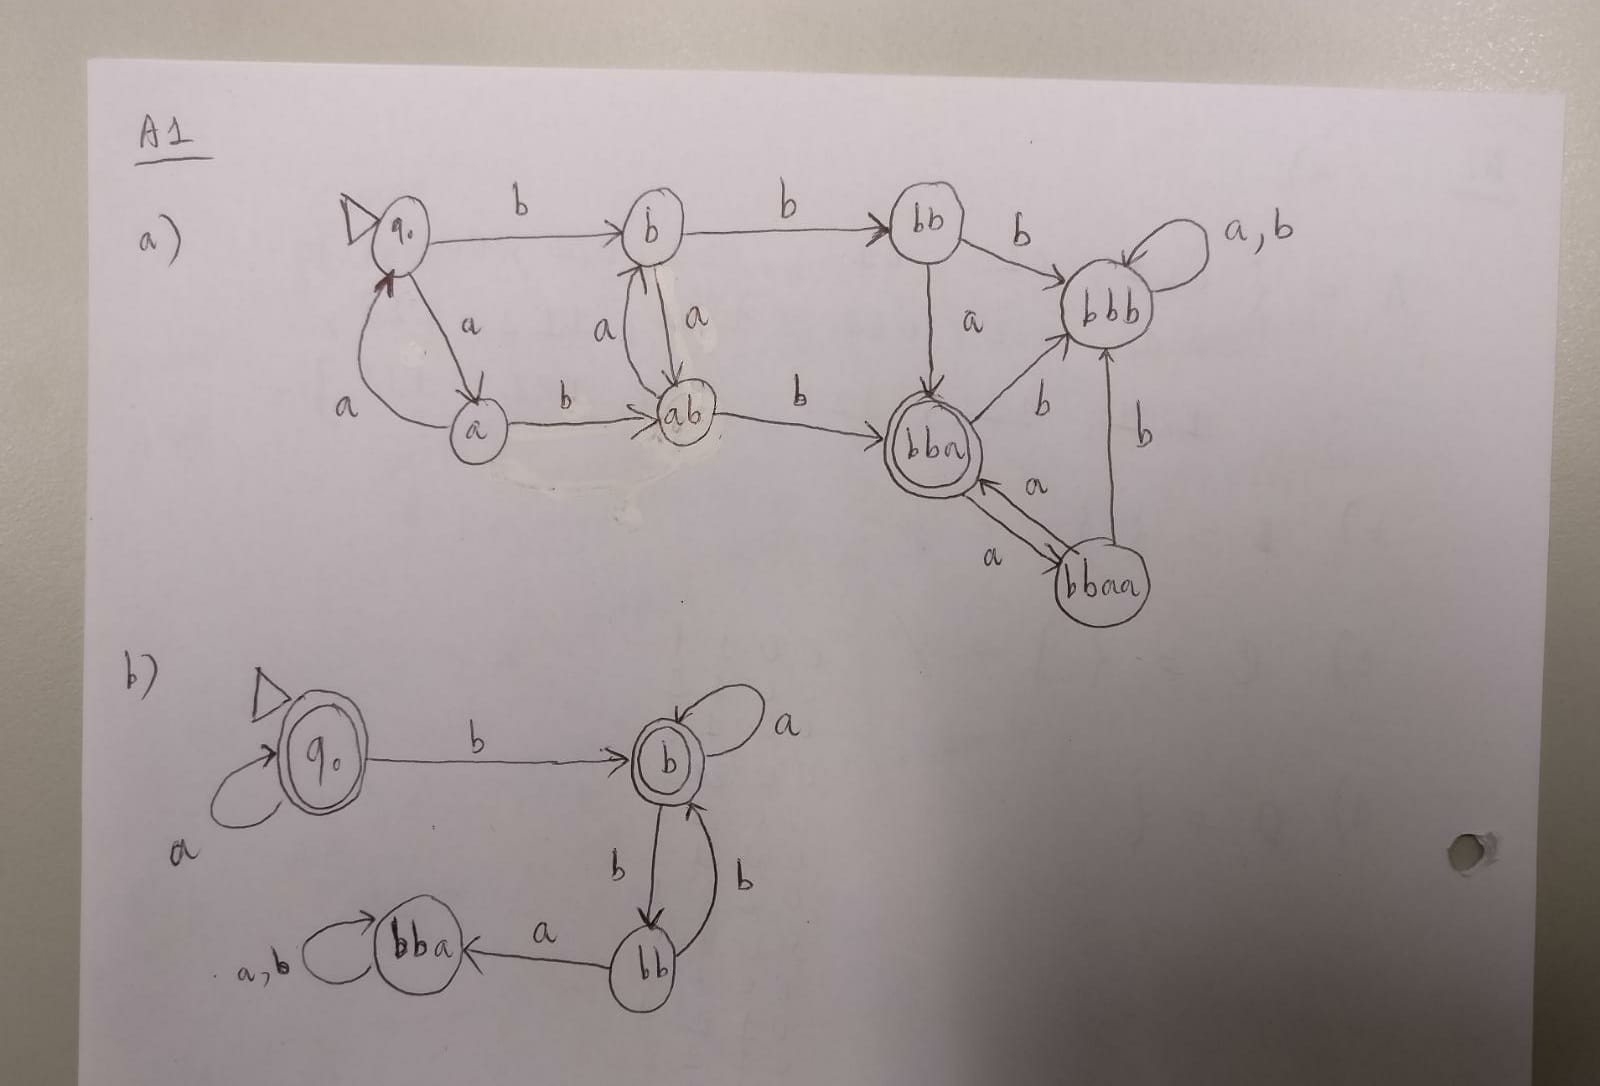 A1
a)
q₀ b b b bb b bbb a, b
a a a a b
a b ab b bba b
a a bbaa
b)
q₀ b b a
a
b b
a, b bba a bb